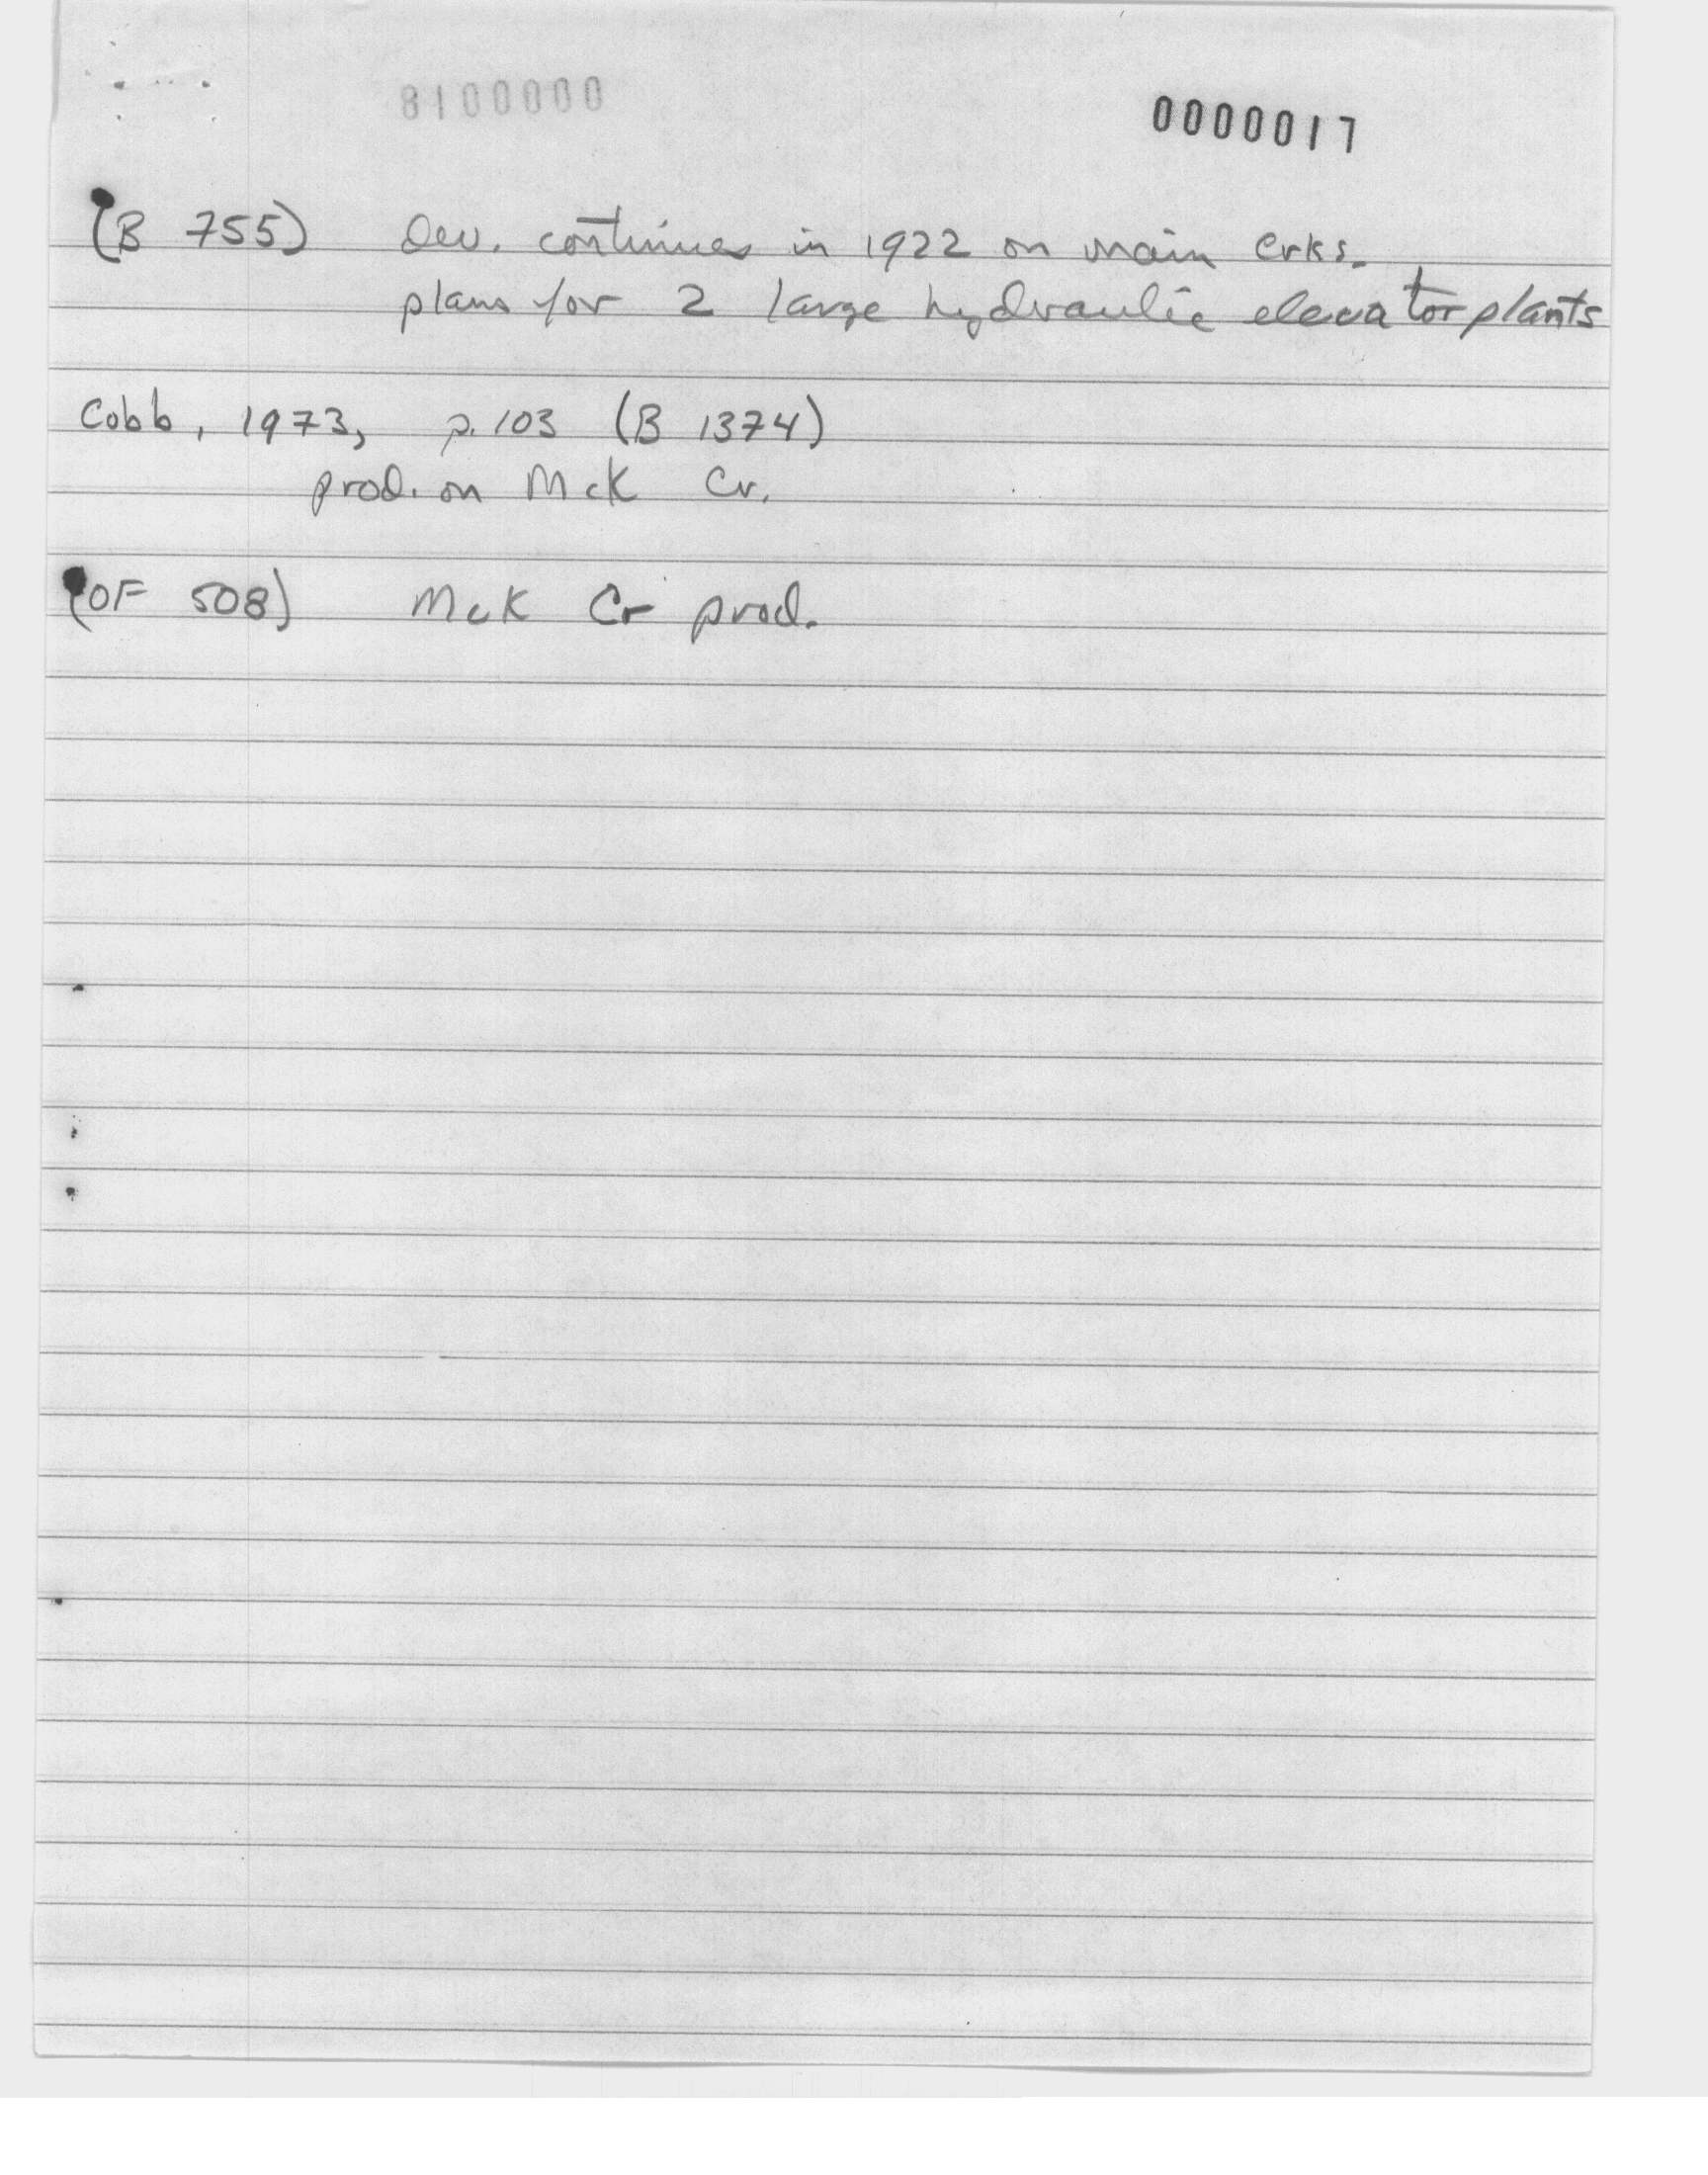 8100000
0000017
(B 755) Dev. continues in 1922 on main Crks.
plans for 2 large hydraulic elevator plants
Cobb, 1973, p. 103 (B 1374)
prod. on McK Cr.
(OF 508) McK Cr prod.